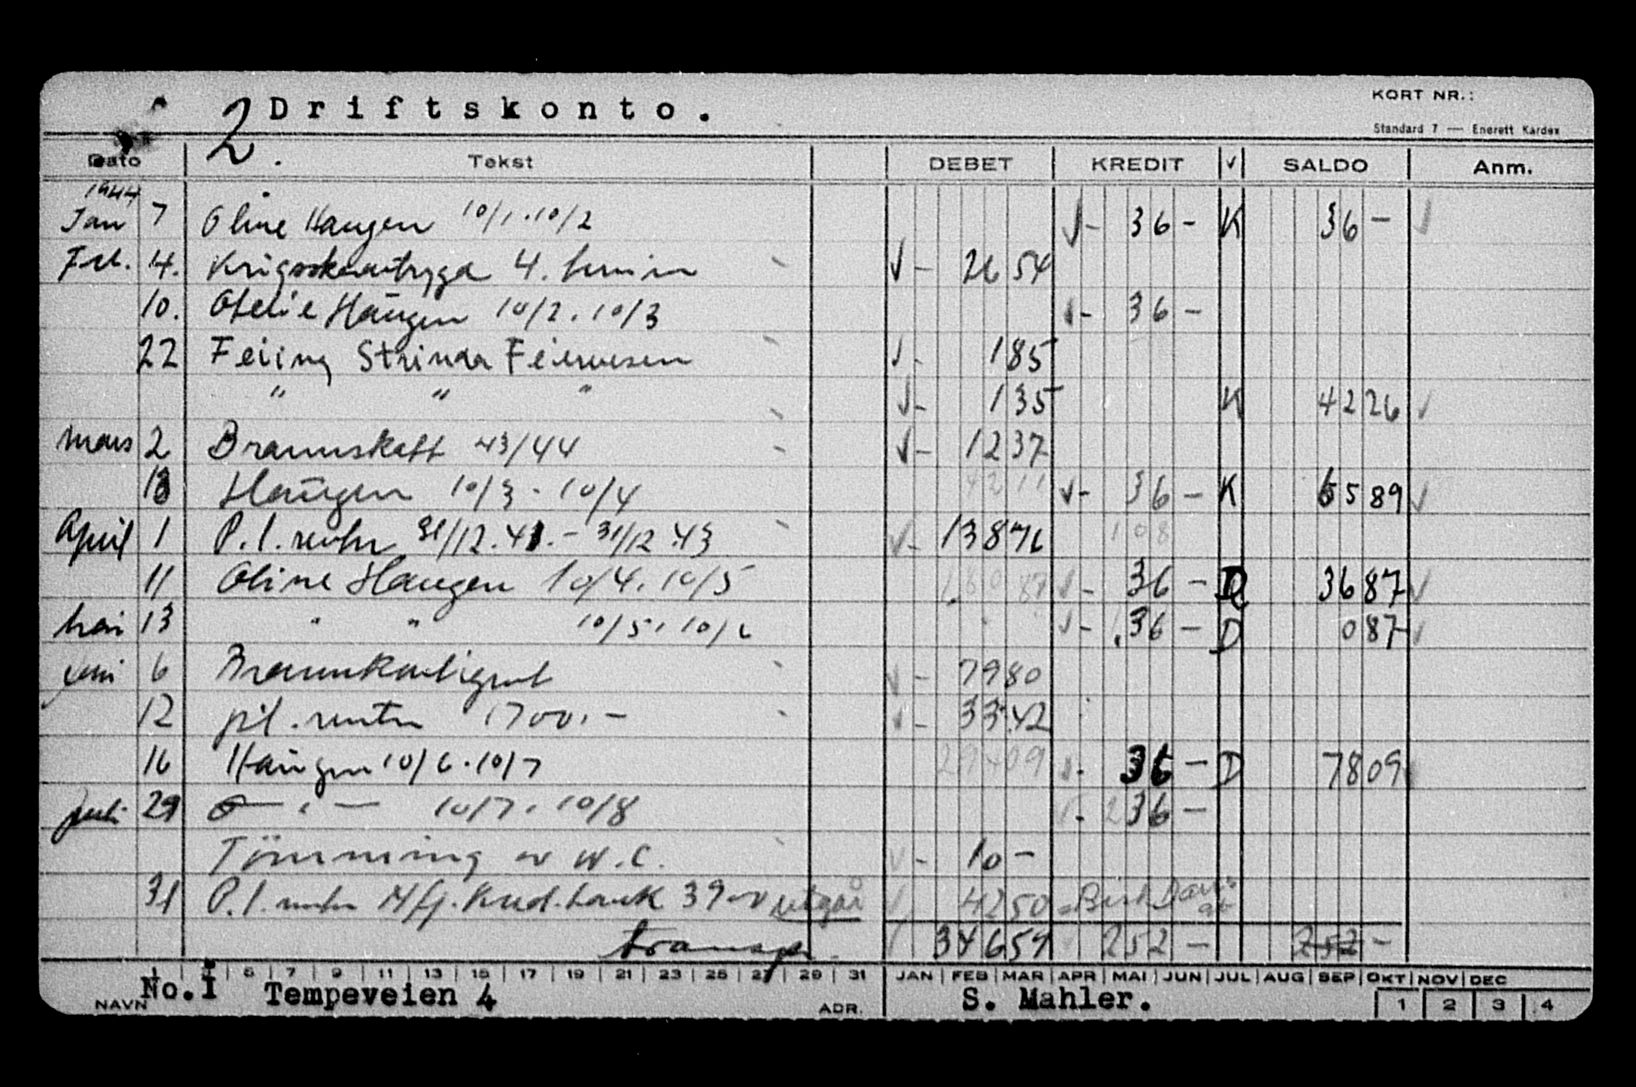 KORT NR.:
2. Driftskonto.
Standard 7 — Enerett Kardex
Dato Tekst DEBET KREDIT √ SALDO Anm.
1944
Jan 7 Oline Haugen 10/1.10/2 √- 36 - K 36 - √
Feb. 4. Krigsskadetrygd 4. termin √- 26 54
10. Ofelie Haugen 10/2.10/3 √- 36 -
22 Feiing Strinda Feiervesen √- 1 85
" " " √- 1 35 K 42 26 √
Mars 2 Brannskatt 43/44 √- 12 37
13 Haugen 10/3 - 10/4 42 11 √- 36 - K 65 89 √
April 1 P.l. renter 31/12.41. - 31/12.43 √- 138 76 108
11 Oline Haugen 10/4.10/5 180 87 √- 36 - D 36 87 √
Mai 13 " " 10/5.10/6 √- 36 - D 0 87 √
Juni 6 √- 79 80
12 pl. renter 1700.- √- 33.42
16 Haugen 10/6.10/7 294 09 √- 36 - D 78 09
Juli 29 - " - 10/7.10/8 2 36 -
Tömming av W.C. √- 10 -
31 P.l. renter Kred.bank 3900 utgår √ 42 50
transp. 346 59 252 - 252 -
1 3 5 7 9 11 13 15 17 19 21 23 25 27 29 31 JAN FEB MAR APR MAI JUN JUL AUG SEP OKT NOV DEC
NAVN No.I Tempeveien 4 ADR. S. Mahler. 1 2 3 4